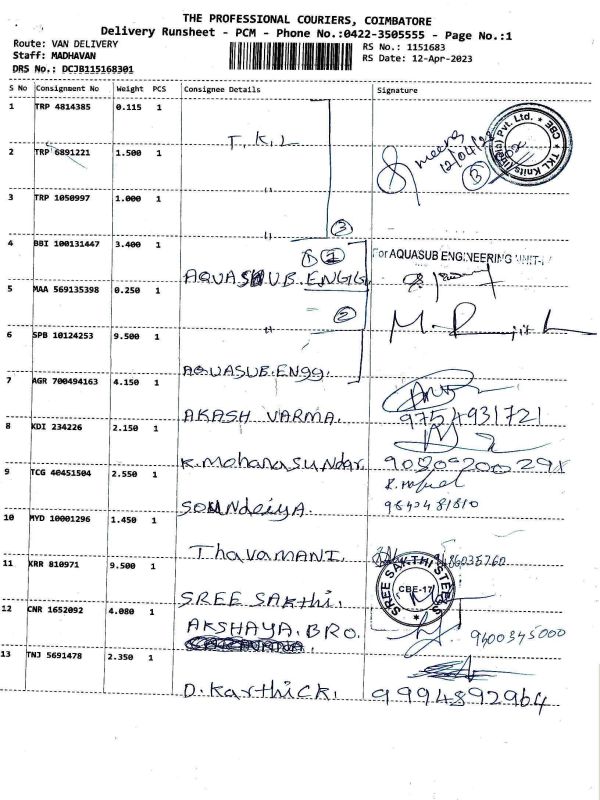 THE PROFESSIONAL COURIERS, COIMBATORE
Delivery Runsheet - PCM - Phone No.:0422-3505555 - Page No.:1
Route: VAN DELIVERY
RS No.: 1151683
Staff: MADHAVAN
RS Date: 12-Apr-2023
DRS No.: DCJB115168301
S No Consignment No Weight PCS Consignee Details Signature
1 TRP 4814385 0.115 1
T.K.L
2 TRP 6891221 1.500 1
12/04/23
TKL Knits(India) Pvt. Ltd. * CBE *
3 TRP 1050997 1.000 1
3
4 BBI 100131447 3.400 1
For AQUASUB ENGINEERING UNIT-I
AQUASUB.ENGG
5 MAA 569135398 0.250 1
2
6 SPB 10124253 9.500 1
AQUASUB.Engg.
7 AGR 700494163 4.150 1
AKASH VARMA. 9754931721
8 KDI 234226 2.150 1
K.Mohanasundar.
9 TCG 40451504 2.550 1
Soundeiya.
10 MYD 10001296 1.450 1
Thavamani.
11 KRR 810971 9.500 1
SREE SAKTHI STEELS
CBE-17
SREE SAKthi.
12 CNR 1652092 4.080 1
AKSHAYA.BRO. 9400345000
13 TNJ 5691478 2.350 1
D.Karthick. 9994892964